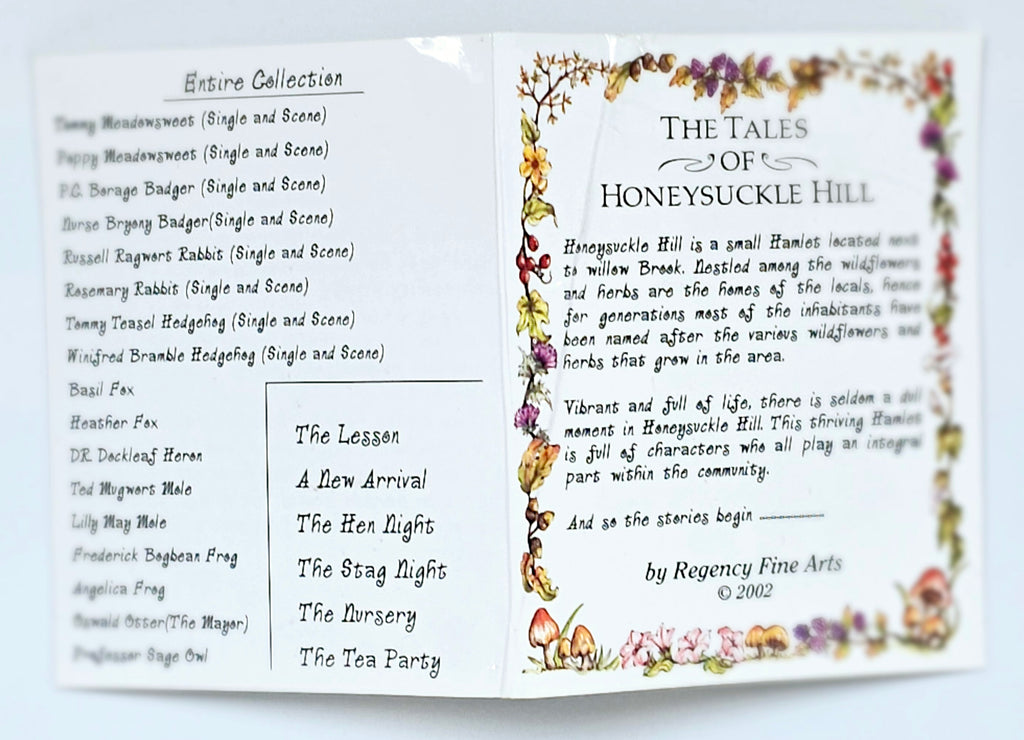 Entire Collection
Tommy Meadowsweet (Single and Scene)
Poppy Meadowsweet (Single and Scene)
P.C. Borage Badger (Single and Scene)
Nurse Bryony Badger(Single and Scene)
Russell Ragwort Rabbit (Single and Scene)
Rosemary Rabbit (Single and Scene)
Tommy Teasel Hedgehog (Single and Scene)
Winifred Bramble Hedgehog (Single and Scene)
Basil Fox
Heather Fox
DR. Dockleaf Heron
Ted Mugwort Mole
Lilly May Mole
Frederick Bogbean Frog
Angelica Frog
Oswald Otter(The Mayor)
Professor Sage Owl
The Lesson
A New Arrival
The Hen Night
The Stag Night
The Nursery
The Tea Party
THE TALES
OF
HONEYSUCKLE HILL
Honeysuckle Hill is a small Hamlet located next
to willow Brook. Nestled among the wildflowers
and herbs are the homes of the locals, hence
for generations most of the inhabitants have
been named after the various wildflowers and
herbs that grow in the area.
Vibrant and full of life, there is seldom a dull
moment in Honeysuckle Hill. This thriving Hamlet
is full of characters who all play an integral
part within the community.
And so the stories begin ----------
by Regency Fine Arts
© 2002